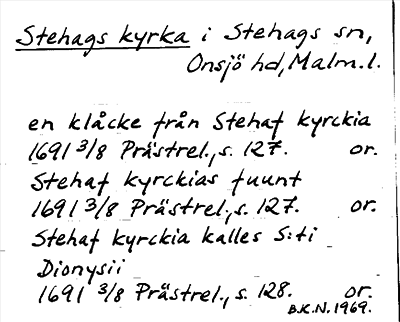 Stehags kyrka i Stehags sn,
Onsjö hd, Malm.l.
en klåcke från Stehaf kyrckia
1691 3/8 Prästrel., s. 127. or.
Stehaf kyrckias fuunt
1691 3/8 Prästrel., s. 127. or.
Stehaf kyrckia kalles S:ti
Dionysii
1691 3/8 Prästrel., s. 128. or.
B.K.N. 1969.